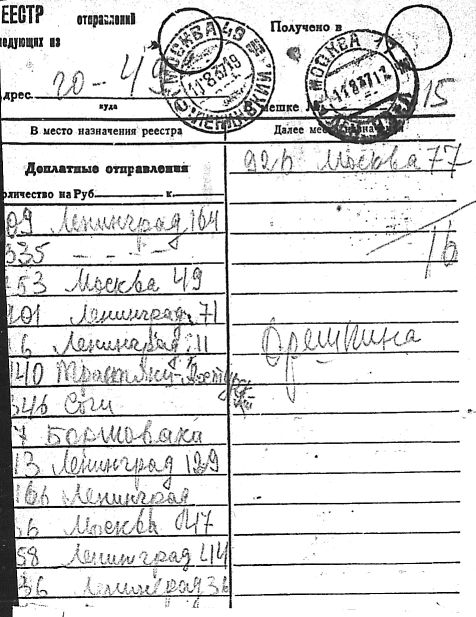 ЕЕСТР отправлений
ледующих из
Получено в
МОСКВА 49
11 8 37 19
МОСКВА
11 8 37 12
дрес го-49
куда
мешке № 15
В место назначения реестра
Далее место назначения
Доплатные отправления
оличество на Руб к.
926 Москва 77
09 Ленинград 164
335 - - - -
16
253 Москва 49
201 Ленинград 71
6 Ленинград 11
Орешкина
140
346 Сочи
7
13 Ленинград 129
166 Ленинград
56 Москва 47
58 Ленинград 44
36 Ленинград 36